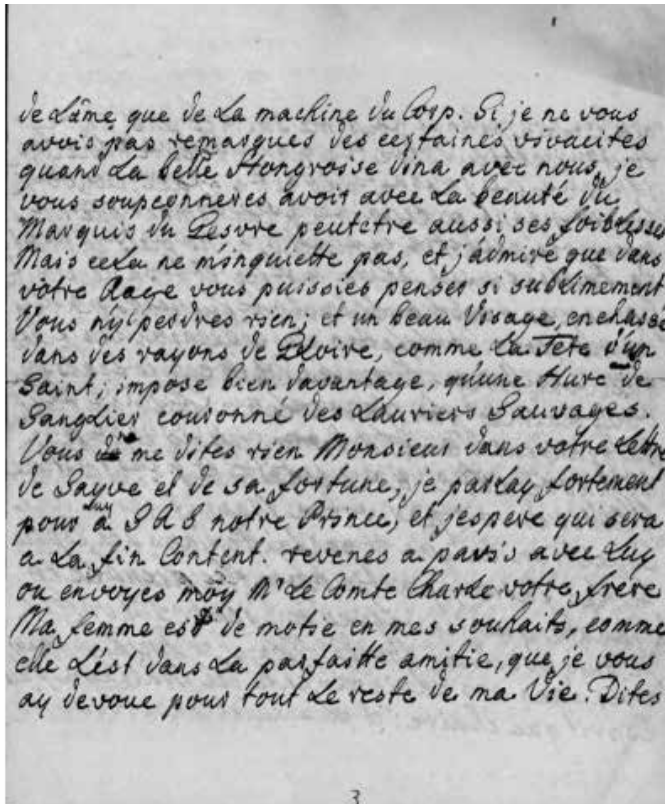 de L'ame que de La machine du Corp. Si je ne vous
avois pas remarques des certaines vivacites
quand La belle Hongroise dina avec nous, je
vous soupçonneres avoir avec La beauté du
Marquis du Gesvre peutetre aussi ses foiblesses
Mais cela ne m'inquiette pas, et j'admire que dans
votre Aage vous puissies penser si sublimement
Vous n'y perdres rien; et un beau Visage, enchassé
dans des rayons de Gloire, comme La Tete d'un
Saint, impose bien davantage, qu'une Hure de
Sanglier couronné des Lauriers Sauvages.
Vous me dites rien Monsieur dans votre Lettre
de Sayve et de sa fortune, je parlay fortement
pour luy a S A S notre Prince, et j'espere qui sera
a La fin Content. revenes a paris avec Luy
ou envoyes moy Mr Le Comte Charle votre frere
Ma femme est de motie en mes souhaits, comme
elle L'est dans La parfaitte amitie, que je vous
ay devoue pour tout Le reste de ma Vie. Dites
3